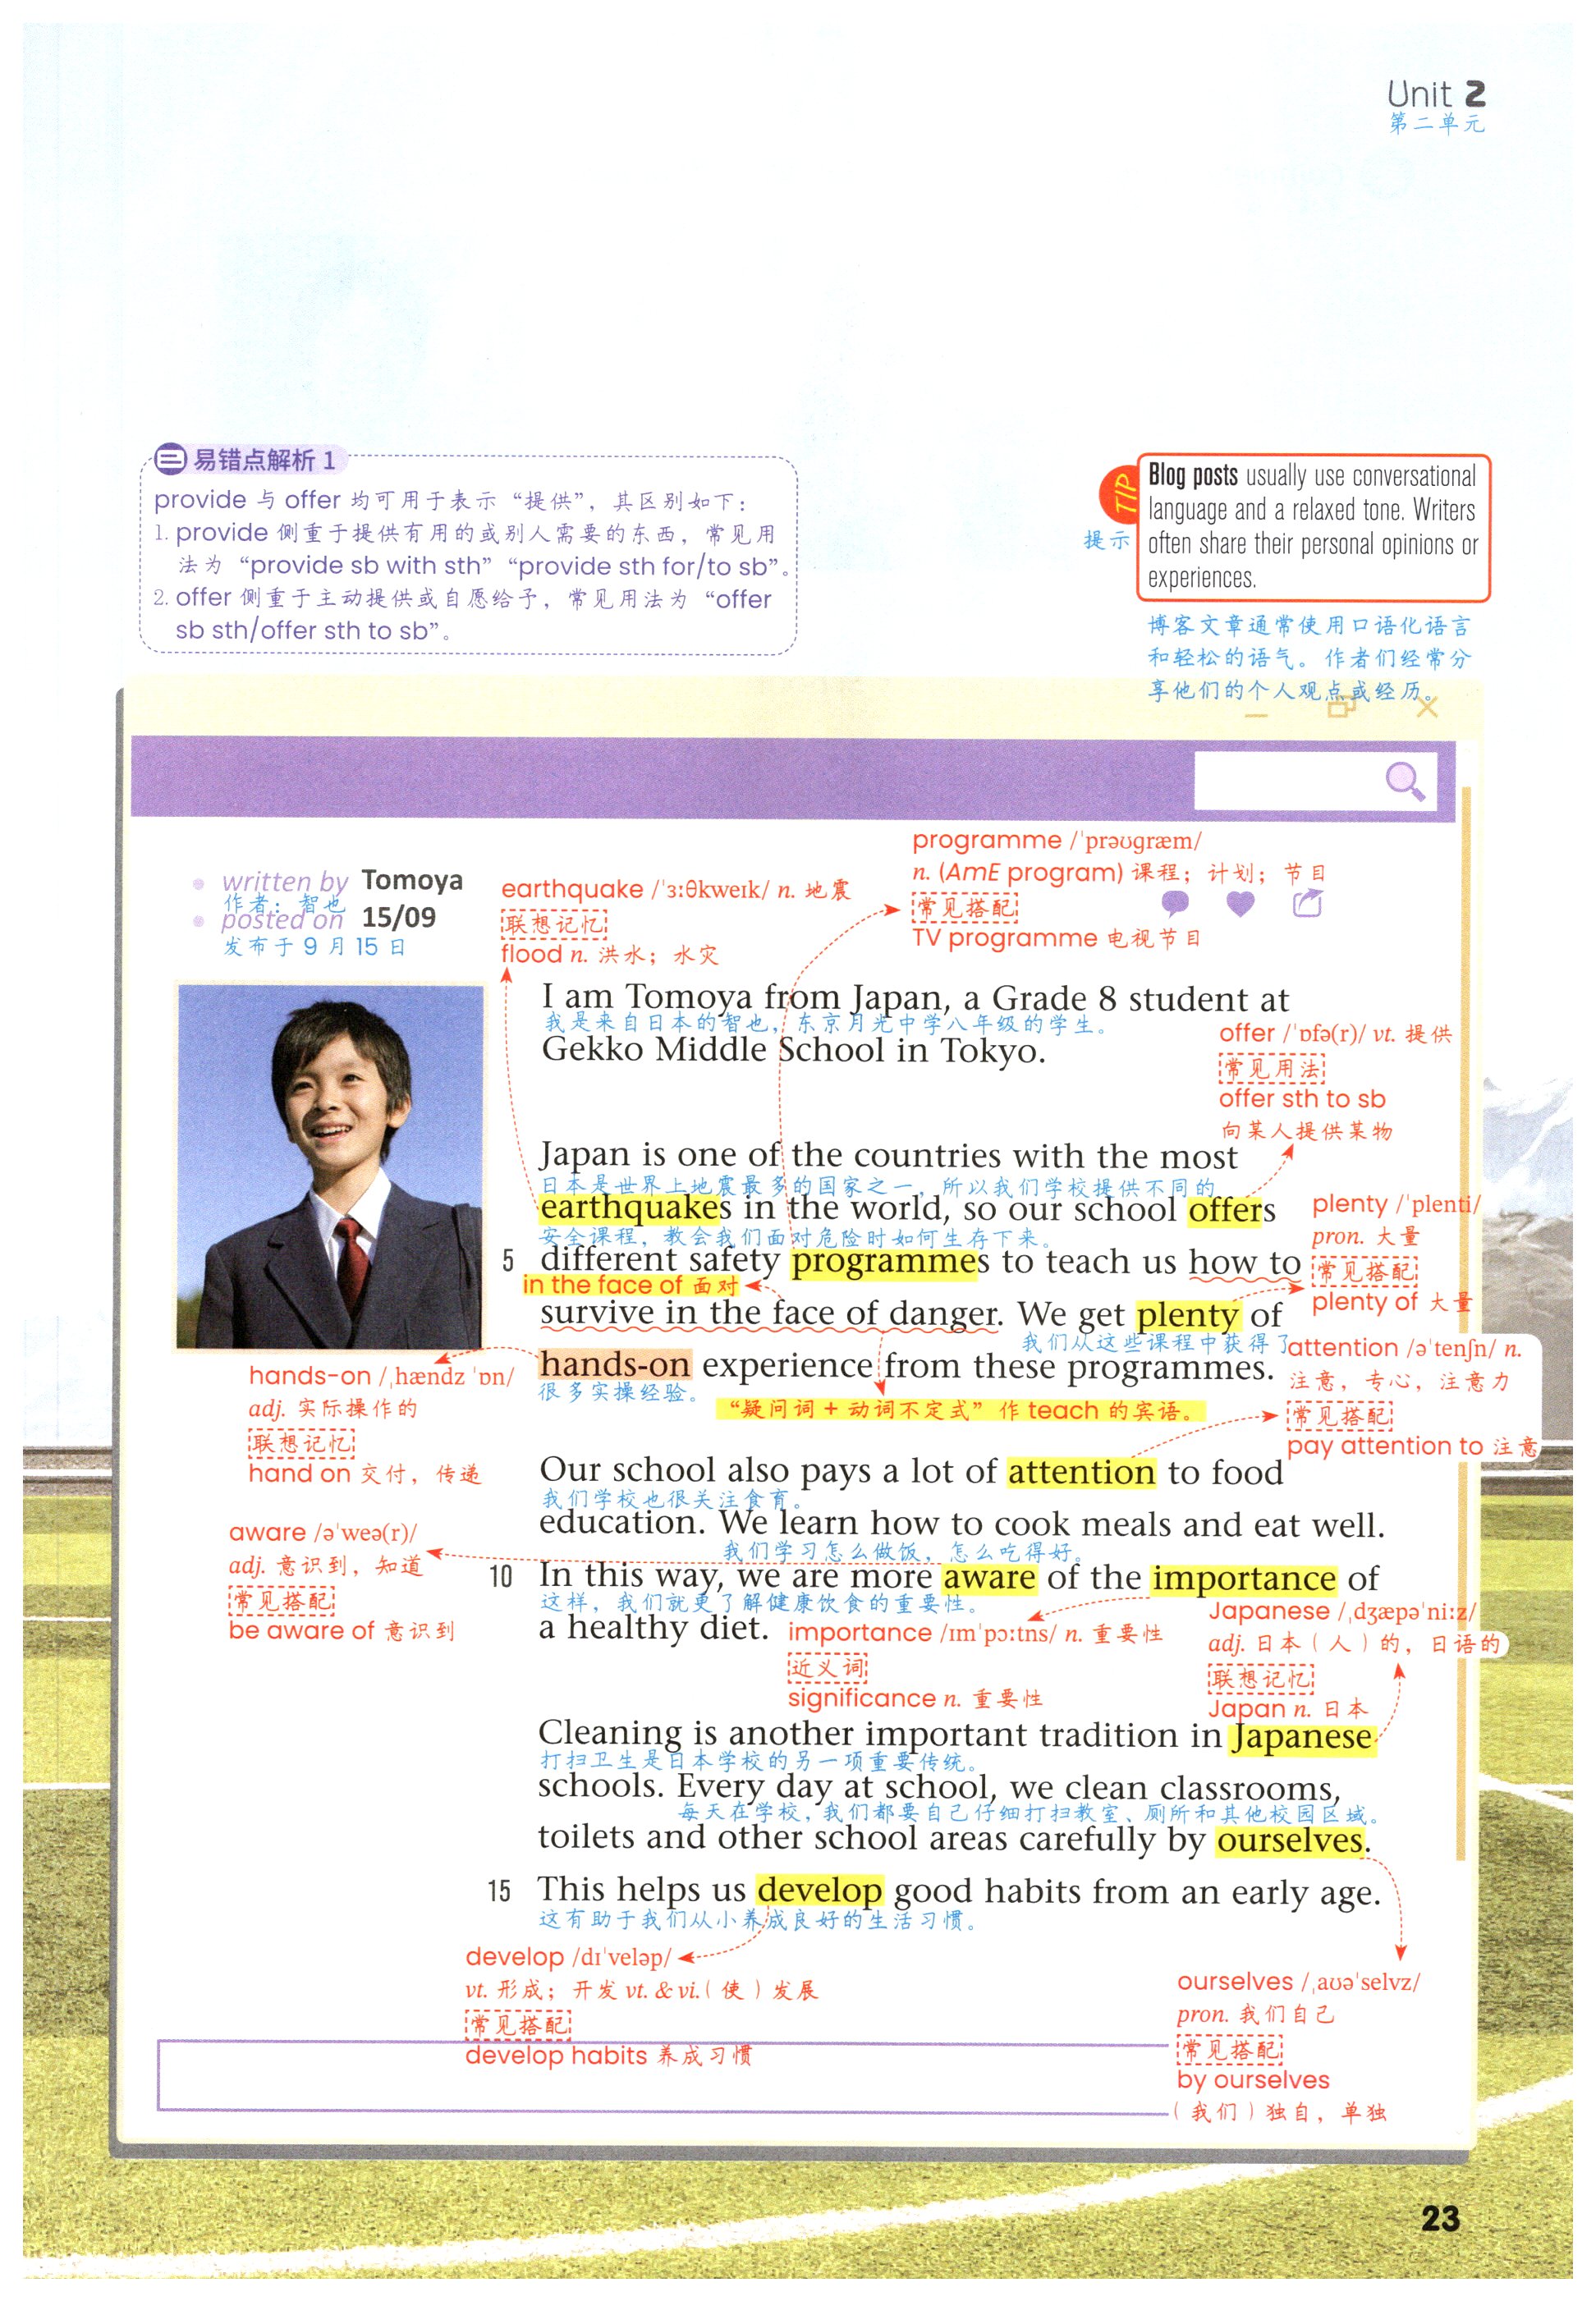 Unit 2
第二单元
易错点解析 1
provide 与 offer 均可用于表示“提供”，其区别如下：
1. provide 侧重于提供有用的或别人需要的东西，常见用
法为“provide sb with sth”“provide sth for/to sb”。
2. offer 侧重于主动提供或自愿给予，常见用法为“offer
sb sth/offer sth to sb”。
TIP
提示
Blog posts usually use conversational
language and a relaxed tone. Writers
often share their personal opinions or
experiences.
博客文章通常使用口语化语言
和轻松的语气。作者们经常分
享他们的个人观点或经历。
written by Tomoya
作者：智也
posted on 15/09
发布于 9 月 15 日
earthquake /ˈɜːθkweɪk/ n. 地震
联想记忆
flood n. 洪水；水灾
programme /ˈprəʊɡræm/
n. (AmE program) 课程；计划；节目
常见搭配
TV programme 电视节目
I am Tomoya from Japan, a Grade 8 student at
我是来自日本的智也，东京月光中学八年级的学生。
Gekko Middle School in Tokyo.
offer /ˈɒfə(r)/ vt. 提供
常见用法
offer sth to sb
向某人提供某物
Japan is one of the countries with the most
日本是世界上地震最多的国家之一，所以我们学校提供不同的
earthquakes in the world, so our school offers
安全课程，教会我们面对危险时如何生存下来。
5 different safety programmes to teach us how to
in the face of 面对
survive in the face of danger. We get plenty of
我们从这些课程中获得了
hands-on experience from these programmes.
很多实操经验。
“疑问词 + 动词不定式”作 teach 的宾语。
plenty /ˈplenti/
pron. 大量
常见搭配
plenty of 大量
attention /əˈtenʃn/ n.
注意，专心，注意力
常见搭配
pay attention to 注意
hands-on /ˌhændz ˈɒn/
adj. 实际操作的
联想记忆
hand on 交付，传递
Our school also pays a lot of attention to food
我们学校也很关注食育。
education. We learn how to cook meals and eat well.
我们学习怎么做饭，怎么吃得好。
10 In this way, we are more aware of the importance of
这样，我们就更了解健康饮食的重要性。
a healthy diet.
aware /əˈweə(r)/
adj. 意识到，知道
常见搭配
be aware of 意识到
importance /ɪmˈpɔːtns/ n. 重要性
近义词
significance n. 重要性
Japanese /ˌdʒæpəˈniːz/
adj. 日本（人）的，日语的
联想记忆
Japan n. 日本
Cleaning is another important tradition in Japanese
打扫卫生是日本学校的另一项重要传统。
schools. Every day at school, we clean classrooms,
每天在学校，我们都要自己仔细打扫教室、厕所和其他校园区域。
toilets and other school areas carefully by ourselves.
15 This helps us develop good habits from an early age.
这有助于我们从小养成良好的生活习惯。
develop /dɪˈveləp/
vt. 形成；开发 vt. & vi.（使）发展
常见搭配
develop habits 养成习惯
ourselves /ˌaʊəˈselvz/
pron. 我们自己
常见搭配
by ourselves
（我们）独自，单独
23